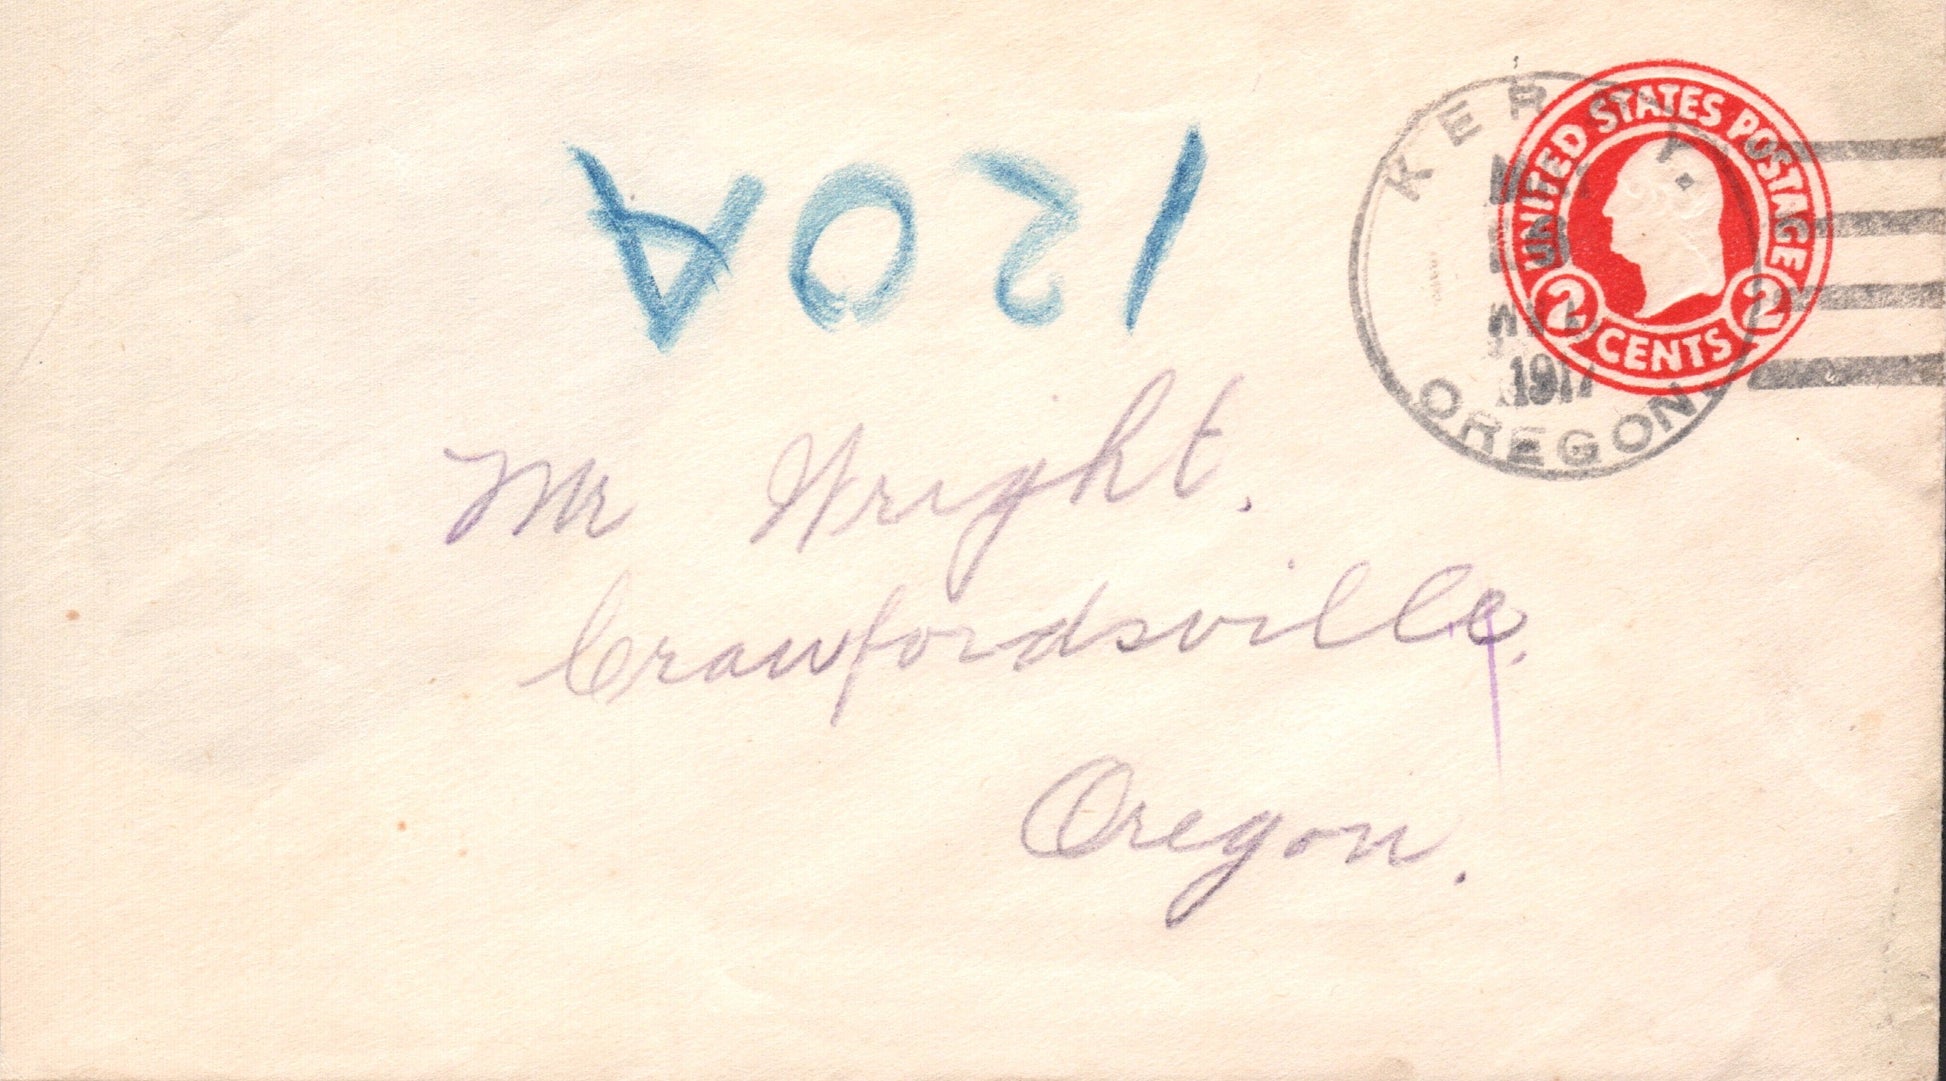 120A
KERBY.
1917
OREGON.
UNITED STATES POSTAGE
2 CENTS 2
Mr Wright.
Crawfordsville.
Oregon.